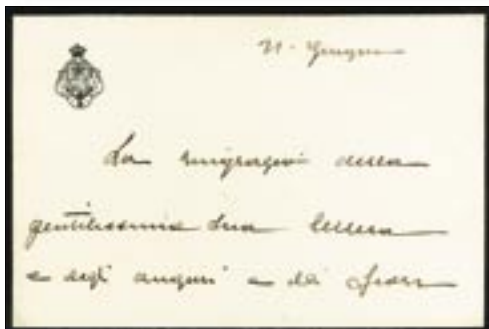 21 - Giugno
La ringrazio della
gentilissima Sua lettera
e degli auguri e dei fiori